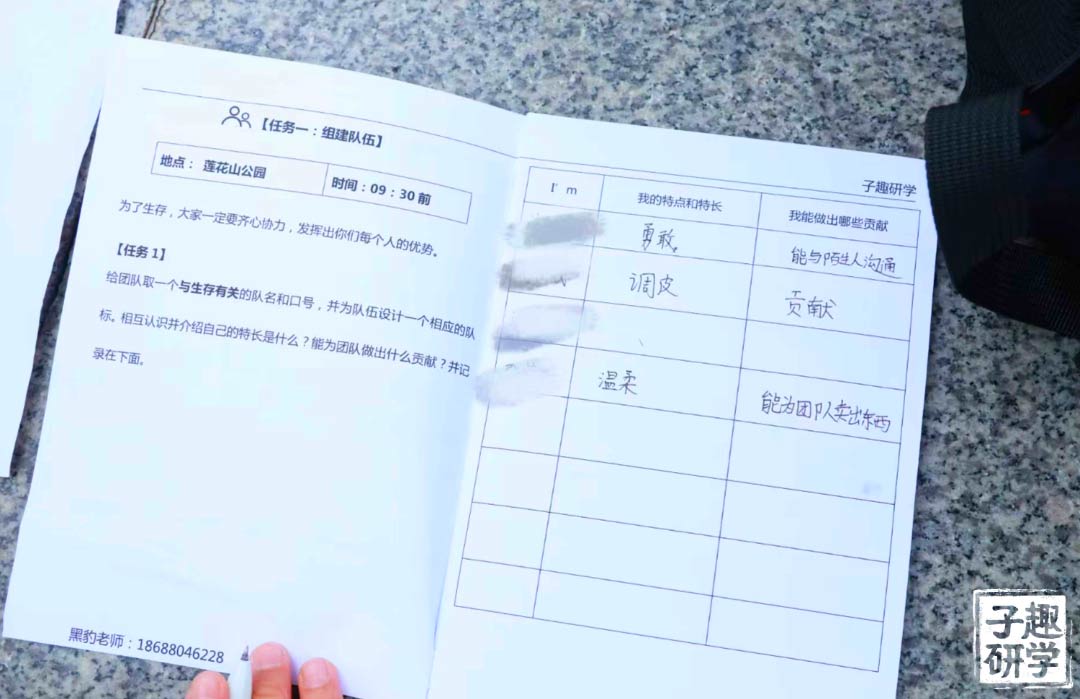 【任务一：组建队伍】
地点： 莲花山公园
时间：09：30 前
为了生存，大家一定要齐心协力，发挥出你们每个人的优势。
【任务 1】
给团队取一个与生存有关的队名和口号，并为队伍设计一个相应的队
标。相互认识并介绍自己的特长是什么？能为团队做出什么贡献？并记
录在下面。
黑豹老师：18688046228
子趣研学
I' m 我的特点和特长 我能做出哪些贡献
勇敢。 能与陌生人沟通
调皮 贡献
温柔 能为团队卖出东西
子趣
研学